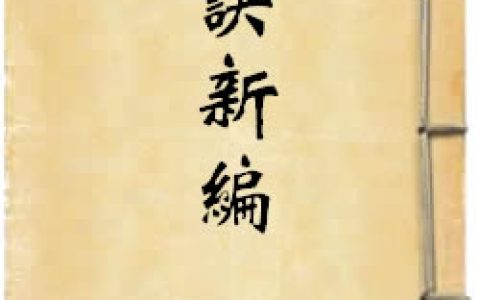 訣新編